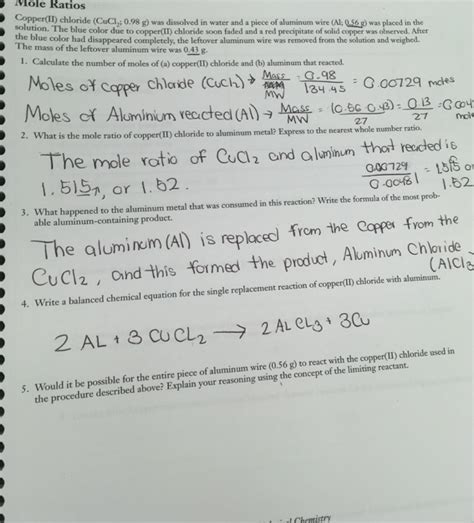 Mole Ratios
Copper(II) chloride (CuCl₂; 0.98 g) was dissolved in water and a piece of aluminum wire (Al; 0.56 g) was placed in the
solution. The blue color due to copper(II) chloride soon faded and a red precipitate of solid copper was observed. After
the blue color had disappeared completely, the leftover aluminum wire was removed from the solution and weighed.
The mass of the leftover aluminum wire was 0.43 g.
1. Calculate the number of moles of (a) copper(II) chloride and (b) aluminum that reacted.
Moles of copper chloride (CuCl₂) → Mass/MW = 0.98/134.45 = 0.00729 moles
Moles of Aluminium reacted (Al) → Mass/MW = (0.56-0.43)/27 = 0.13/27 = 0.004
2. What is the mole ratio of copper(II) chloride to aluminum metal? Express to the nearest whole number ratio.
The mole ratio of CuCl₂ and aluminum that reacted is
1.515, or 1.52. 0.00729/0.00481 = 1.515 or 1.52
3. What happened to the aluminum metal that was consumed in this reaction? Write the formula of the most prob-
able aluminum-containing product.
The aluminum (Al) is replaced from the Copper from the
CuCl₂, and this formed the product, Aluminum Chloride
(AlCl₃
4. Write a balanced chemical equation for the single replacement reaction of copper(II) chloride with aluminum.
2 AL + 3 CUCL₂ → 2 AL CL₃ + 3Cu
5. Would it be possible for the entire piece of aluminum wire (0.56 g) to react with the copper(II) chloride used in
the procedure described above? Explain your reasoning using the concept of the limiting reactant.
Chemistry